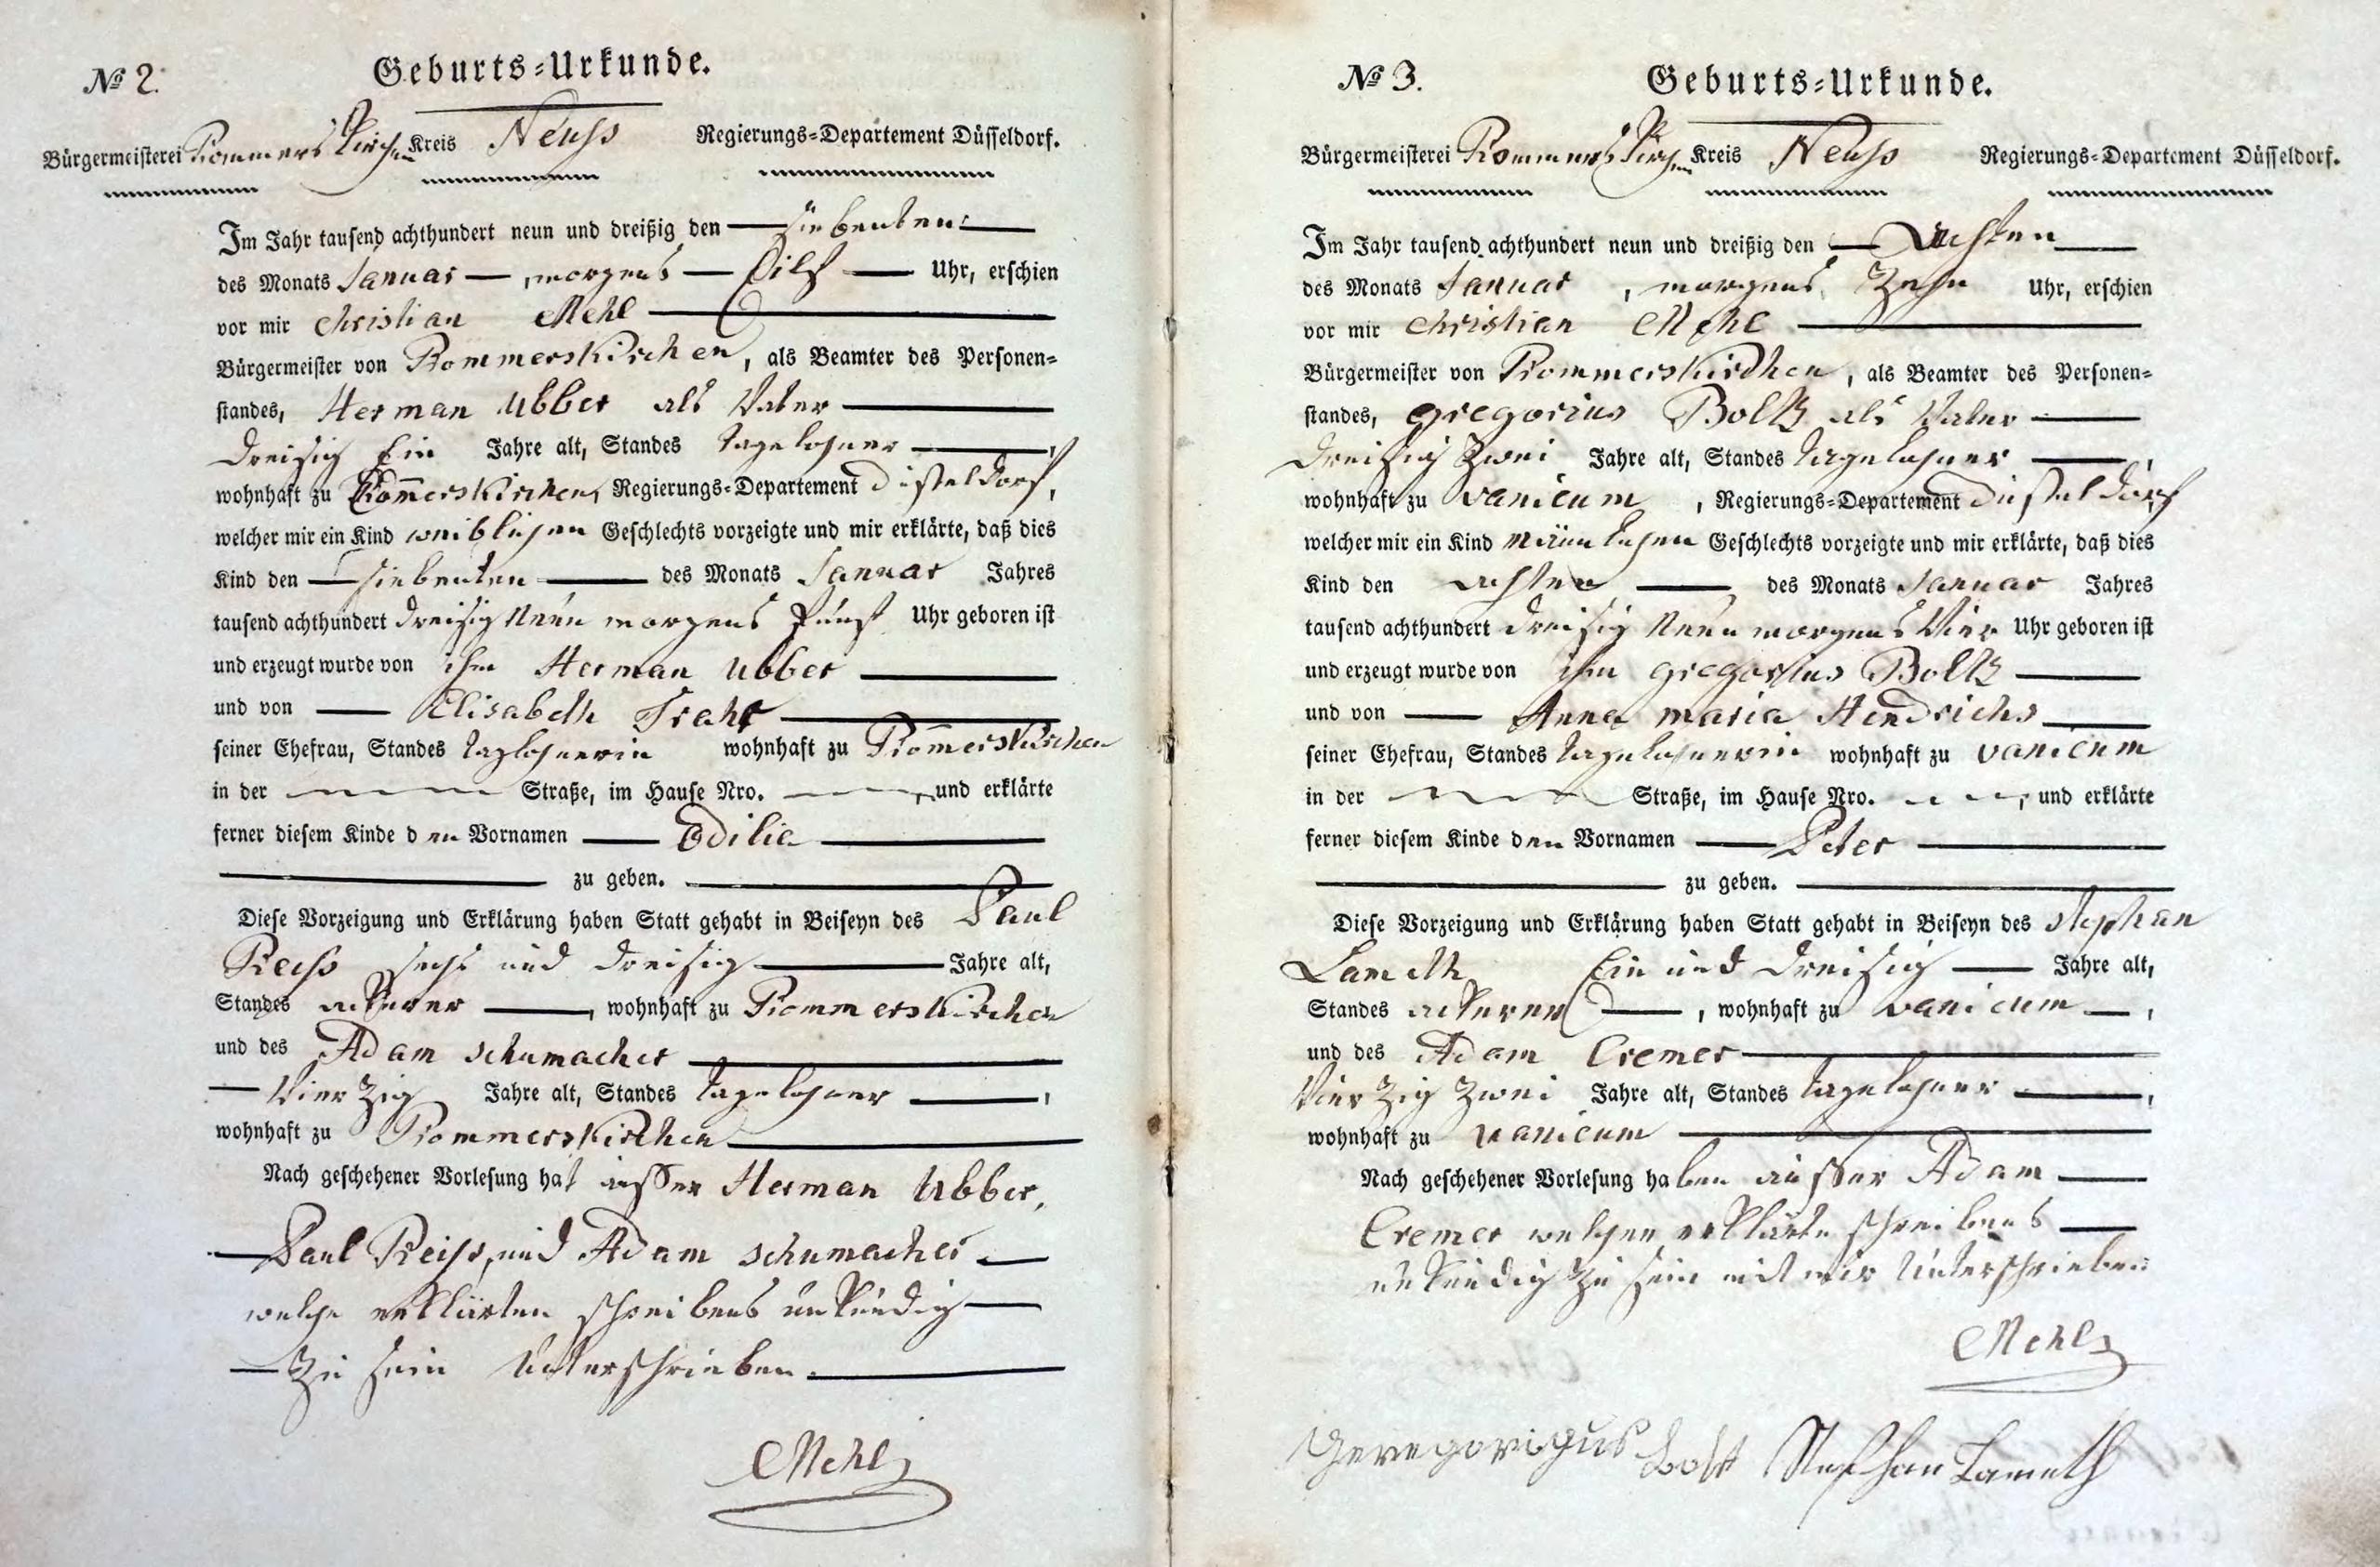 № 2.
Geburts-Urkunde.
Bürgermeisterei Rommerskirchen Kreis Neuss Regierungs-Departement Düsseldorf.
Im Jahr tausend achthundert neun und dreißig den siebenten
des Monats Januar, morgens Eilf Uhr, erschien
vor mir Christian Mehl
Bürgermeister von Rommerskirchen, als Beamter des Personen-
standes, Herman Ubber als Vater
dreisig Ein Jahre alt, Standes Tagelohner,
wohnhaft zu Rom̅erskirchen, Regierungs-Departement Disseldorf,
welcher mir ein Kind weiblichen Geschlechts vorzeigte und mir erklärte, daß dies
Kind den siebenten des Monats Januar Jahres
tausend achthundert dreisig Neun morgens Fünf Uhr geboren ist
und erzeugt wurde von ihm Herman Ubber
und von Elisabeth
seiner Ehefrau, Standes Taglohnerin wohnhaft zu Rom̅erskirchen
in der Straße, im Hause Nro. , und erklärte
ferner diesem Kinde den Vornamen Odilia
zu geben.
Diese Vorzeigung und Erklärung haben Statt gehabt in Beiseyn des Paul
Reiss sechs und dreisig Jahre alt,
Standes Ackerer, wohnhaft zu Rommerskirchen
und des Adam Schumacher
Vierzig Jahre alt, Standes Tagelohner,
wohnhaft zu Rommerskirchen
Nach geschehener Vorlesung hat ausser Herman Ubber,
Paul Reiss, und Adam Schumacher
welche erklärten schreibens unkundig
zu sein Unterschrieben.
Mehl
№ 3.
Geburts-Urkunde.
Bürgermeisterei Rommerskirchen Kreis Neuss Regierungs-Departement Düsseldorf.
Im Jahr tausend achthundert neun und dreißig den Achten
des Monats Januar, morgens Zehn Uhr, erschien
vor mir Christian Mehl
Bürgermeister von Rommerskirchen, als Beamter des Personen-
standes, Gregorius Boltz als Vater
dreisig Zwei Jahre alt, Standes Tagelohner,
wohnhaft zu Vanicum, Regierungs-Departement Disseldorf
welcher mir ein Kind Männlichen Geschlechts vorzeigte und mir erklärte, daß dies
Kind den Achten des Monats Januar Jahres
tausend achthundert dreisig Neun morgens Vier Uhr geboren ist
und erzeugt wurde von ihm Gregorius Boltz
und von Anna Maria Hendrichs
seiner Ehefrau, Standes Tagelohnerin wohnhaft zu Vanicum
in der Straße, im Hause Nro. , und erklärte
ferner diesem Kinde den Vornamen Peter
zu geben.
Diese Vorzeigung und Erklärung haben Statt gehabt in Beiseyn des Stephan
Lameth Ein und dreisig Jahre alt,
Standes Ackerer, wohnhaft zu Vanicum,
und des Adam Cremer
Vierzig Zwei Jahre alt, Standes Tagelohner,
wohnhaft zu Vanicum
Nach geschehener Vorlesung haben ausser Adam
Cremer welcher erklärte schreibens
unkundig zu sein mit mir Unterschrieben
Mehl
Geregorigus Bolst Stephan Lameth